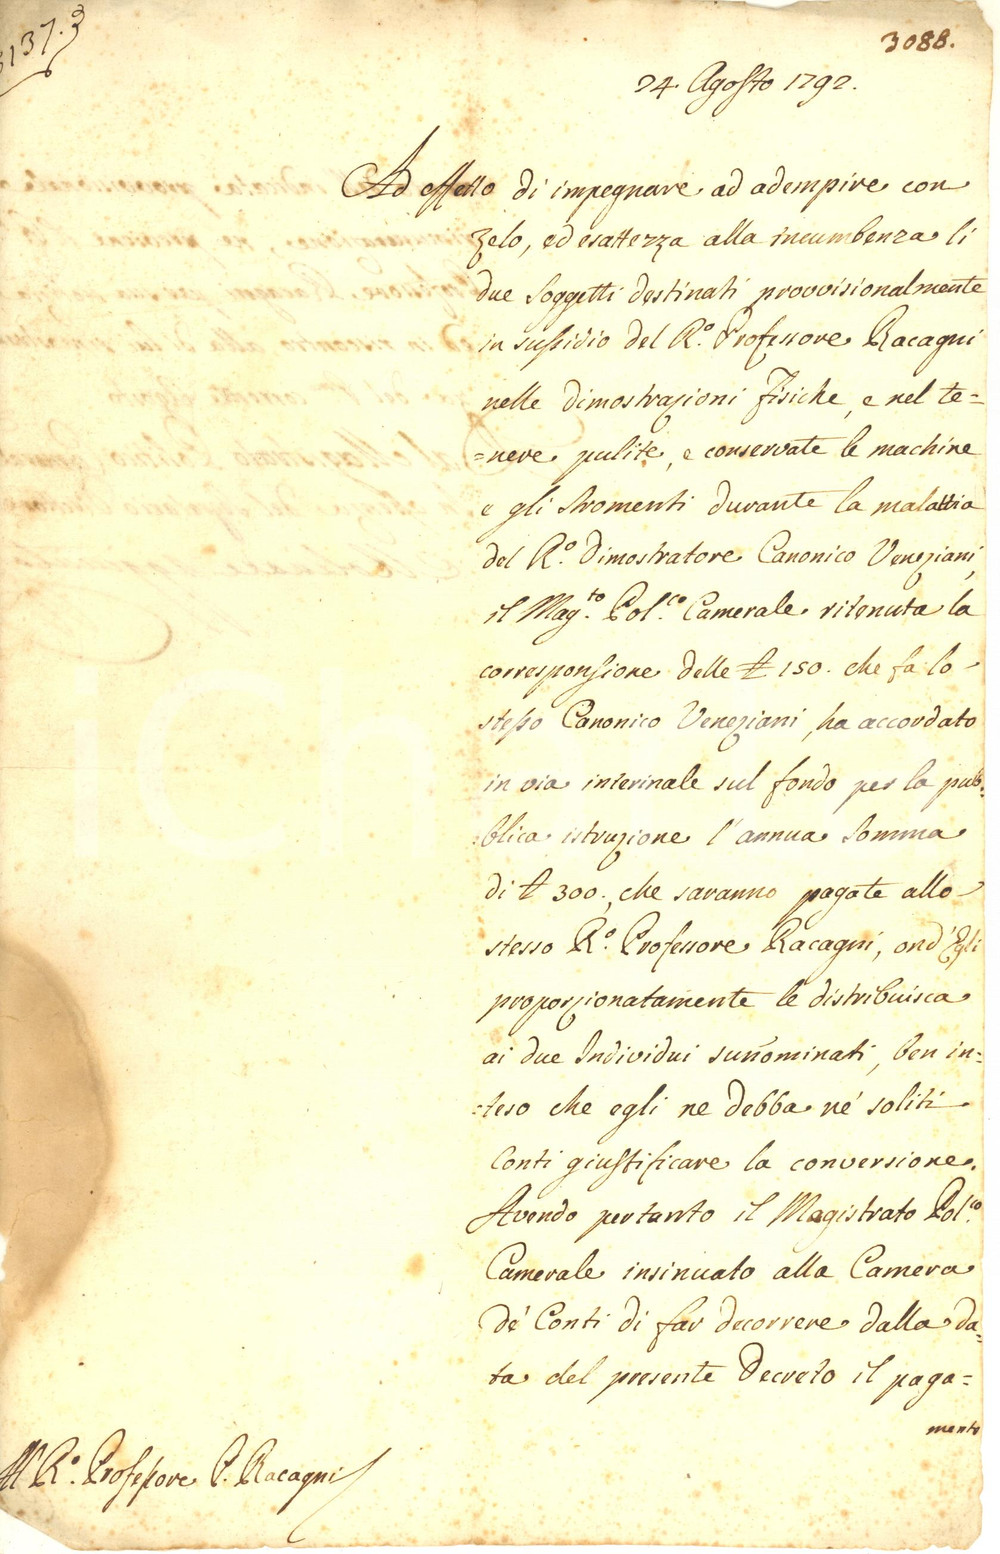 3137.3
3088.
24. Agosto 1792.
Ad effetto di impegnare ad adempire con
zelo, ed esattezza alla incumbenza li
due Soggetti destinati provvisionalmente
in sussidio del R.º Professore Racagni
nelle dimostrazioni Fisiche, e nel te=
=nere pulite, e conservate le machine
e gli stromenti durante la malattia
del R.º Dimostratore Canonico Veneziani,
il Mag.to Pol.co Camerale ritenuta la
corresponsione delle £ 150. che fa lo
stesso Canonico Veneziani, ha accordato
in via interinale sul fondo per la pub=
=blica istruzione l'annua Somma
di £ 300., che saranno pagate allo
stesso R.º Professore Racagni, ond'Egli
proporzionatamente le distribuisca
ai due Individui sunominati, ben in=
=teso che egli ne debba ne' soliti
Conti giustificare la conversione.
Avendo pertanto il Magistrato Pol.co
Camerale insinuato alla Camera
de' Conti di far decorrere dalla da=
ta del presente Decreto il paga=
mento
Al R.º Professore P. Racagni